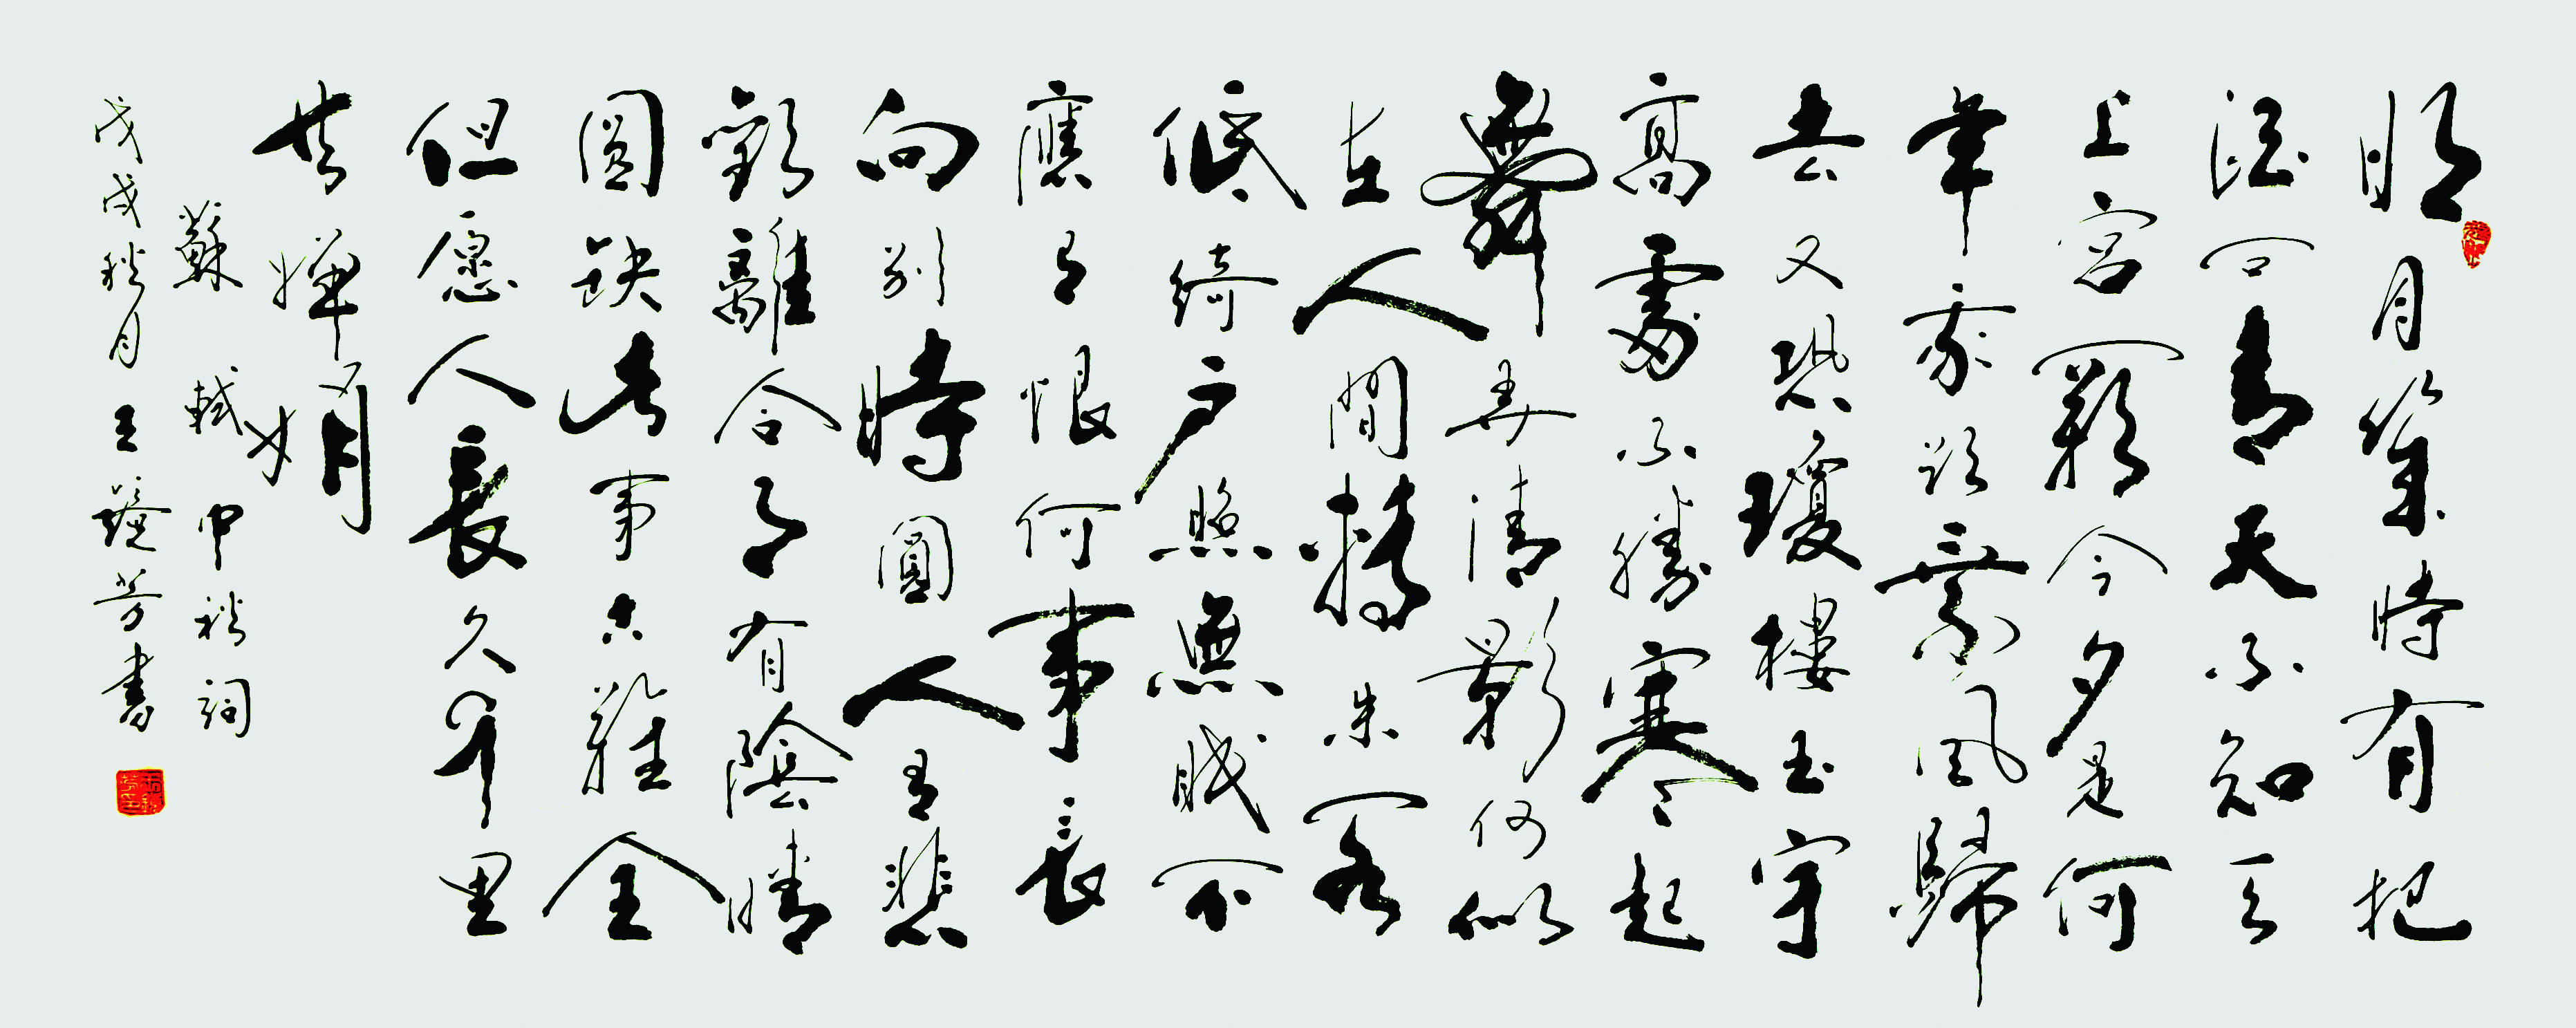 明月幾時有把
酒问青天不知天
上宫闕今夕是何
年我欲乘風歸
去又恐瓊樓玉宇
高處不勝寒起
舞弄清影何似
在人間轉朱閣
低綺户照無眠不
應有恨何事長
向别時圓人有悲
歡離合月有陰晴
圓缺此事古難全
但愿人長久千里
共嬋娟
蘇軾中秋詞
戊戌秋月王芳書